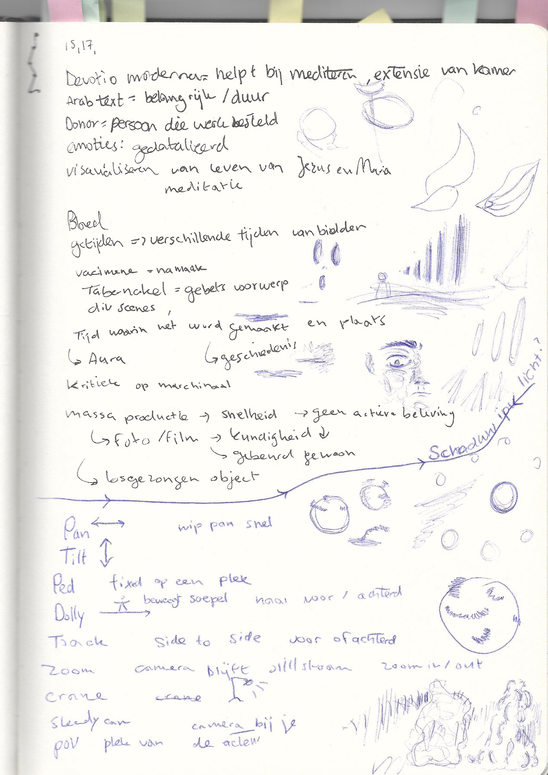 15,17,
Devotio moderna = helpt bij mediteren, extensie van kamer
Arab text = belangrijk / duur
Donor = persoon die werk besteld
emoties: gedetaileerd
visualiseren van leven van Jezus en Maria
meditatie
Bloed
getijden => verschillende tijden van bidden
Tabernakel = gebets voorwerp
div scenes,
Tijd waarin het word gemaakt en plaats
↳ Aura ↳ geschiedenis
Kritiek op marchinaal
massa productie → snelheid → geen actieve beleving
↳ Foto / film → kundigheid ↓
↳ gebeurd gewoon
↳ losgezongen object
Schaduw ipv licht?
Pan ↔ wip pan snel
Tilt ↕
Ped fixed op een plek
Dolly → beweegt soepel naar voor / achterd
Track side to side voor of achterd
Zoom camera blijft stil staan zoom in / out
crane crane
steady cam camera bij je
pov plek van de acteur